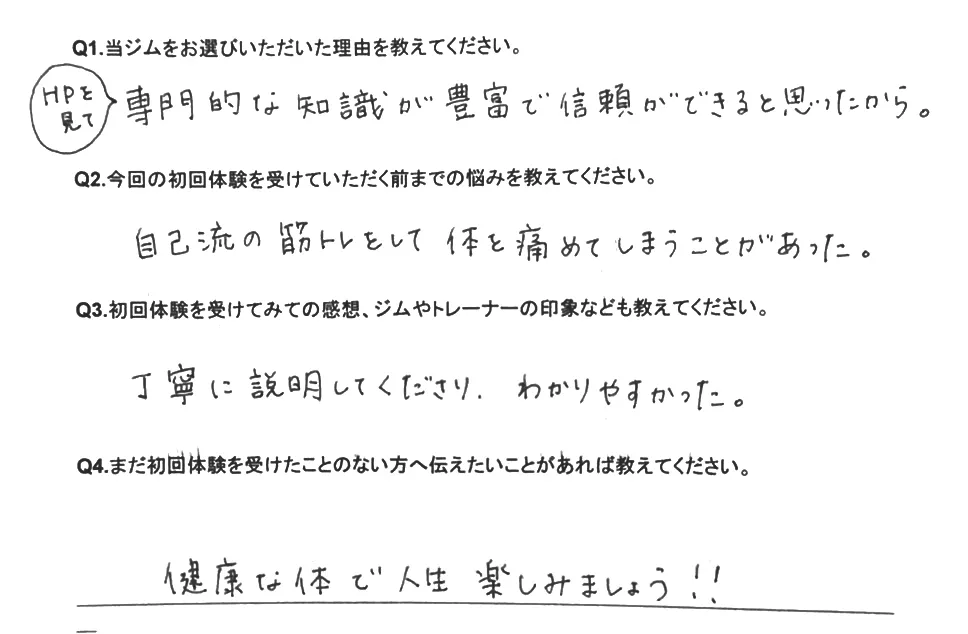 Q1.当ジムをお選びいただいた理由を教えてください。
HPを
見て
専門的な知識が豊富で信頼ができると思ったから。
Q2.今回の初回体験を受けていただく前までの悩みを教えてください。
自己流の筋トレをして体を痛めてしまうことがあった。
Q3.初回体験を受けてみての感想、ジムやトレーナーの印象なども教えてください。
丁寧に説明してくださり、わかりやすかった。
Q4.まだ初回体験を受けたことのない方へ伝えたいことがあれば教えてください。
健康な体で人生楽しみましょう!!